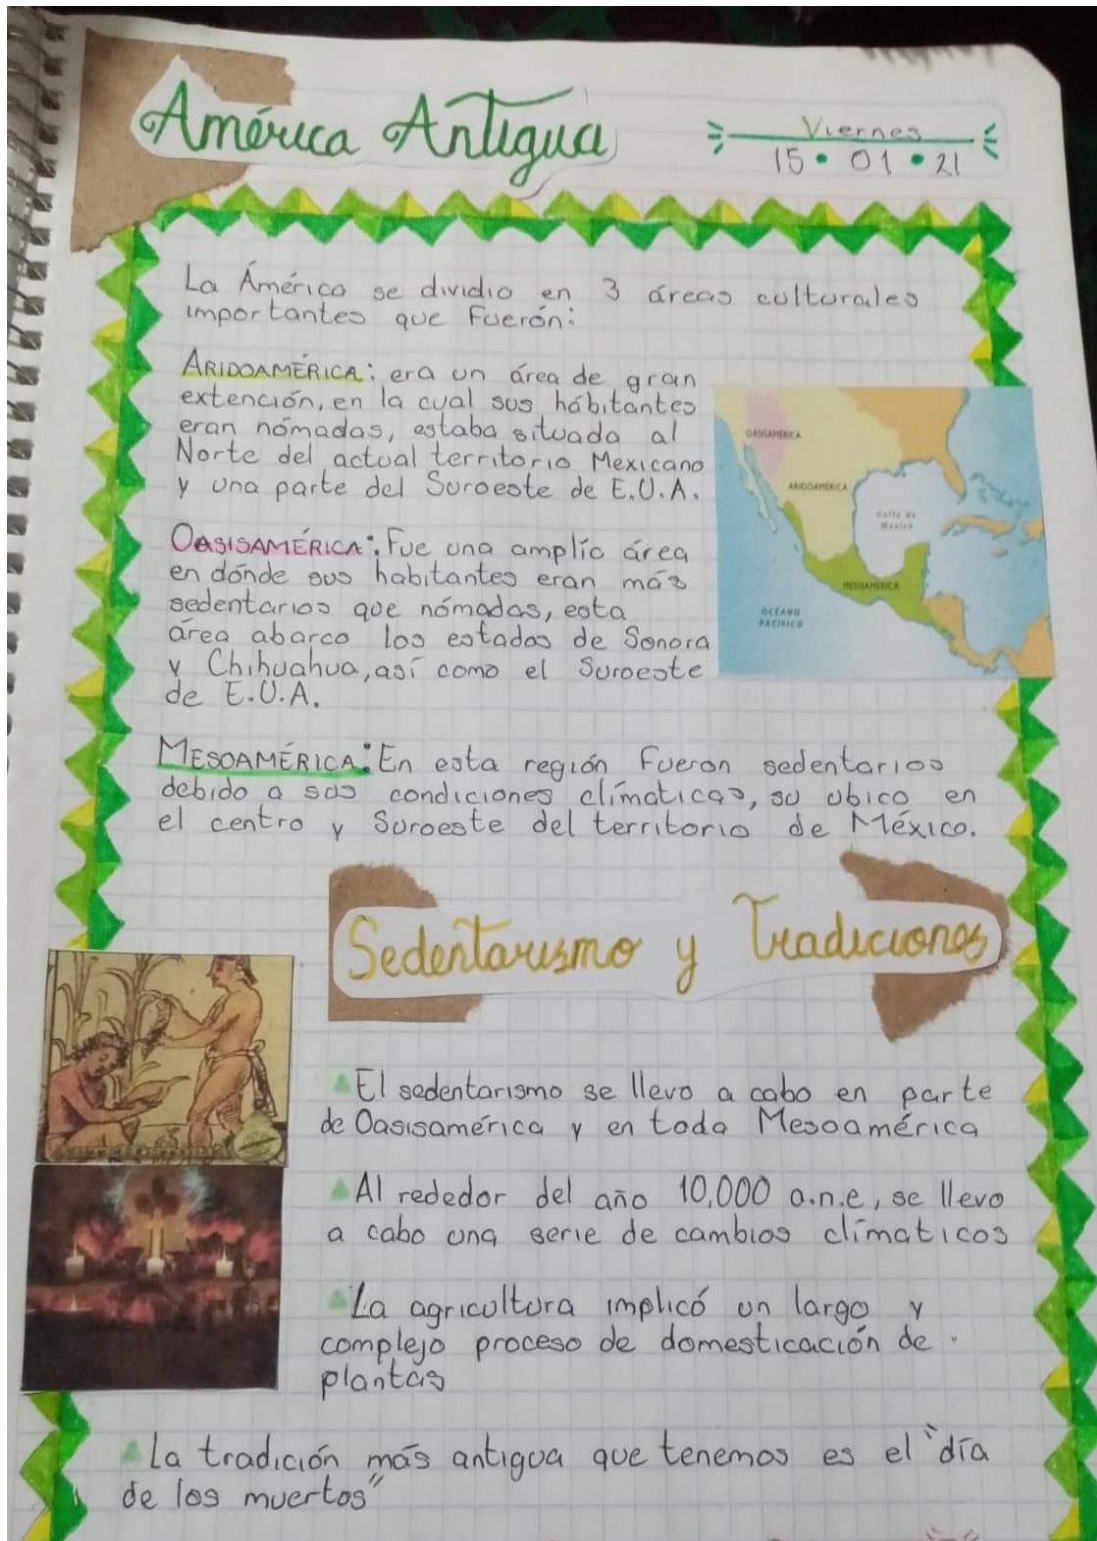 América Antigua
Viernes
15 • 01 • 21
La América se dividio en 3 áreas culturales
importantes que fuerón:
ARIDOAMÉRICA: era un área de gran
extención, en la cual sus hábitantes
eran nómadas, estaba situada al
Norte del actual territorio Mexicano
y una parte del Suroeste de E.U.A.
OASISAMÉRICA: Fue una amplío área
en dónde sus habitantes eran más
sedentarios que nómadas, esta
área abarco los estados de Sonora
y Chihuahua, así como el Suroeste
de E.U.A.
OASISAMÉRICA
ARIDOAMÉRICA
Golfo de
México
MESOAMÉRICA
OCÉANO
PACÍFICO
MESOAMÉRICA: En esta región fueron sedentarios
debido a sus condiciones clímaticas, su ubico en
el centro y Suroeste del territorio de México.
Sedentarismo y Tradiciones
El sedentarismo se llevo a cabo en parte
de Oasisamérica y en toda Mesoamérica
Al rededor del año 10,000 a.n.e, se llevo
a cabo una serie de cambios clímaticos
La agricultura implicó un largo y
complejo proceso de domesticación de
plantas
La tradición más antigua que tenemos es el "día
de los muertos"